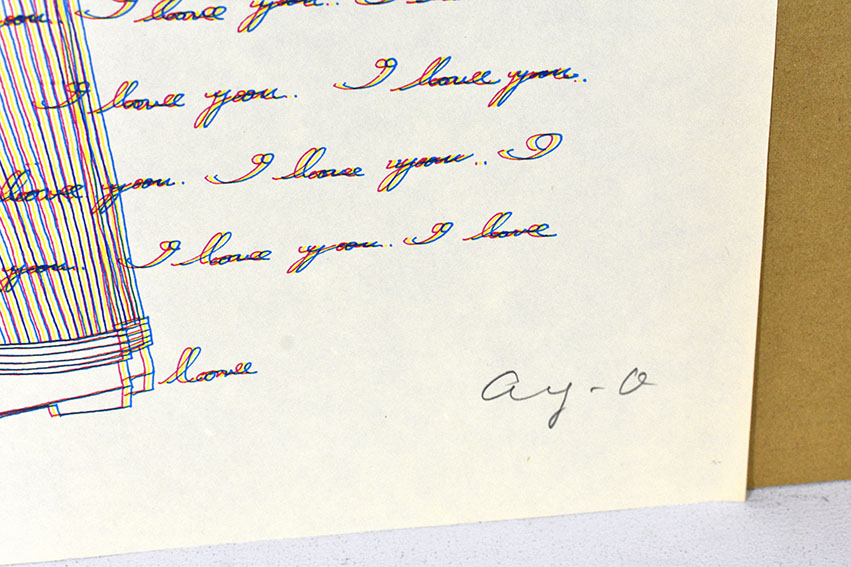 you. I love you.. I
I love you. I love you..
love you. I love you.. I
you. I love you. I love
love
ay-o